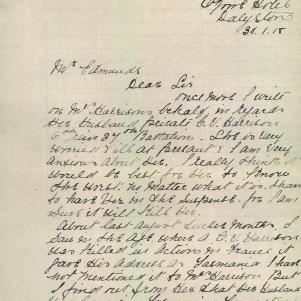 Hotel
Dalyston
30.1.18
Mr Edmunds
Dear Sir
once more I write
on Mrs Harrison's behalf in regards
Her Husband Private C. V. Harrison
37th Battalion. She is very
worried & ill at present & I am very
anxious about Her. I really think it
would be best for Her to know
the worst no matter what it is than
to have Her in the suspense for I am
sure it will kill Her.
About last August I
saw in the Age where a C. V. Harrison
was killed in action in France it
gave His address as Tasmania I have
not mentioned it to Mrs Harrison But
I find out from Her that Her Husband